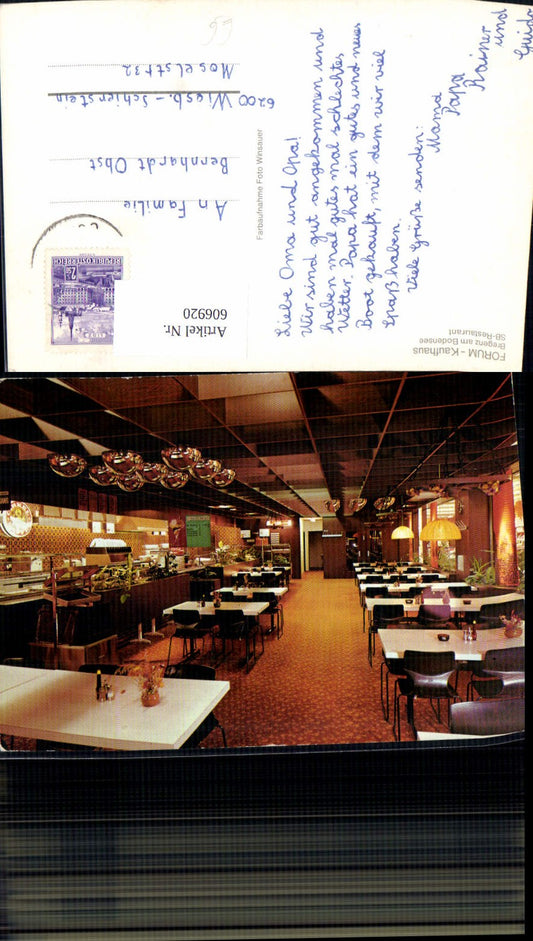 FORUM - Kaufhaus
Bregenz am Bodensee
SB-Restaurant
Liebe Oma und Opa!
Wir sind gut angekommen und
haben mal gutes mal schlechtes
Wetter. Papa hat ein gutes und neues
Boot gekauft, mit dem wir viel
Spaß haben.
Viele Grüße senden:
Mama
Papa
Rainer
und
Guido
Farbaufnahme Foto Winsauer
REPUBLIK ÖSTERREICH
2.50
Artikel Nr.
606920
An Familie
Bernhardt Obst
6200 Wiesb.-Schierstein
Moselstr 32